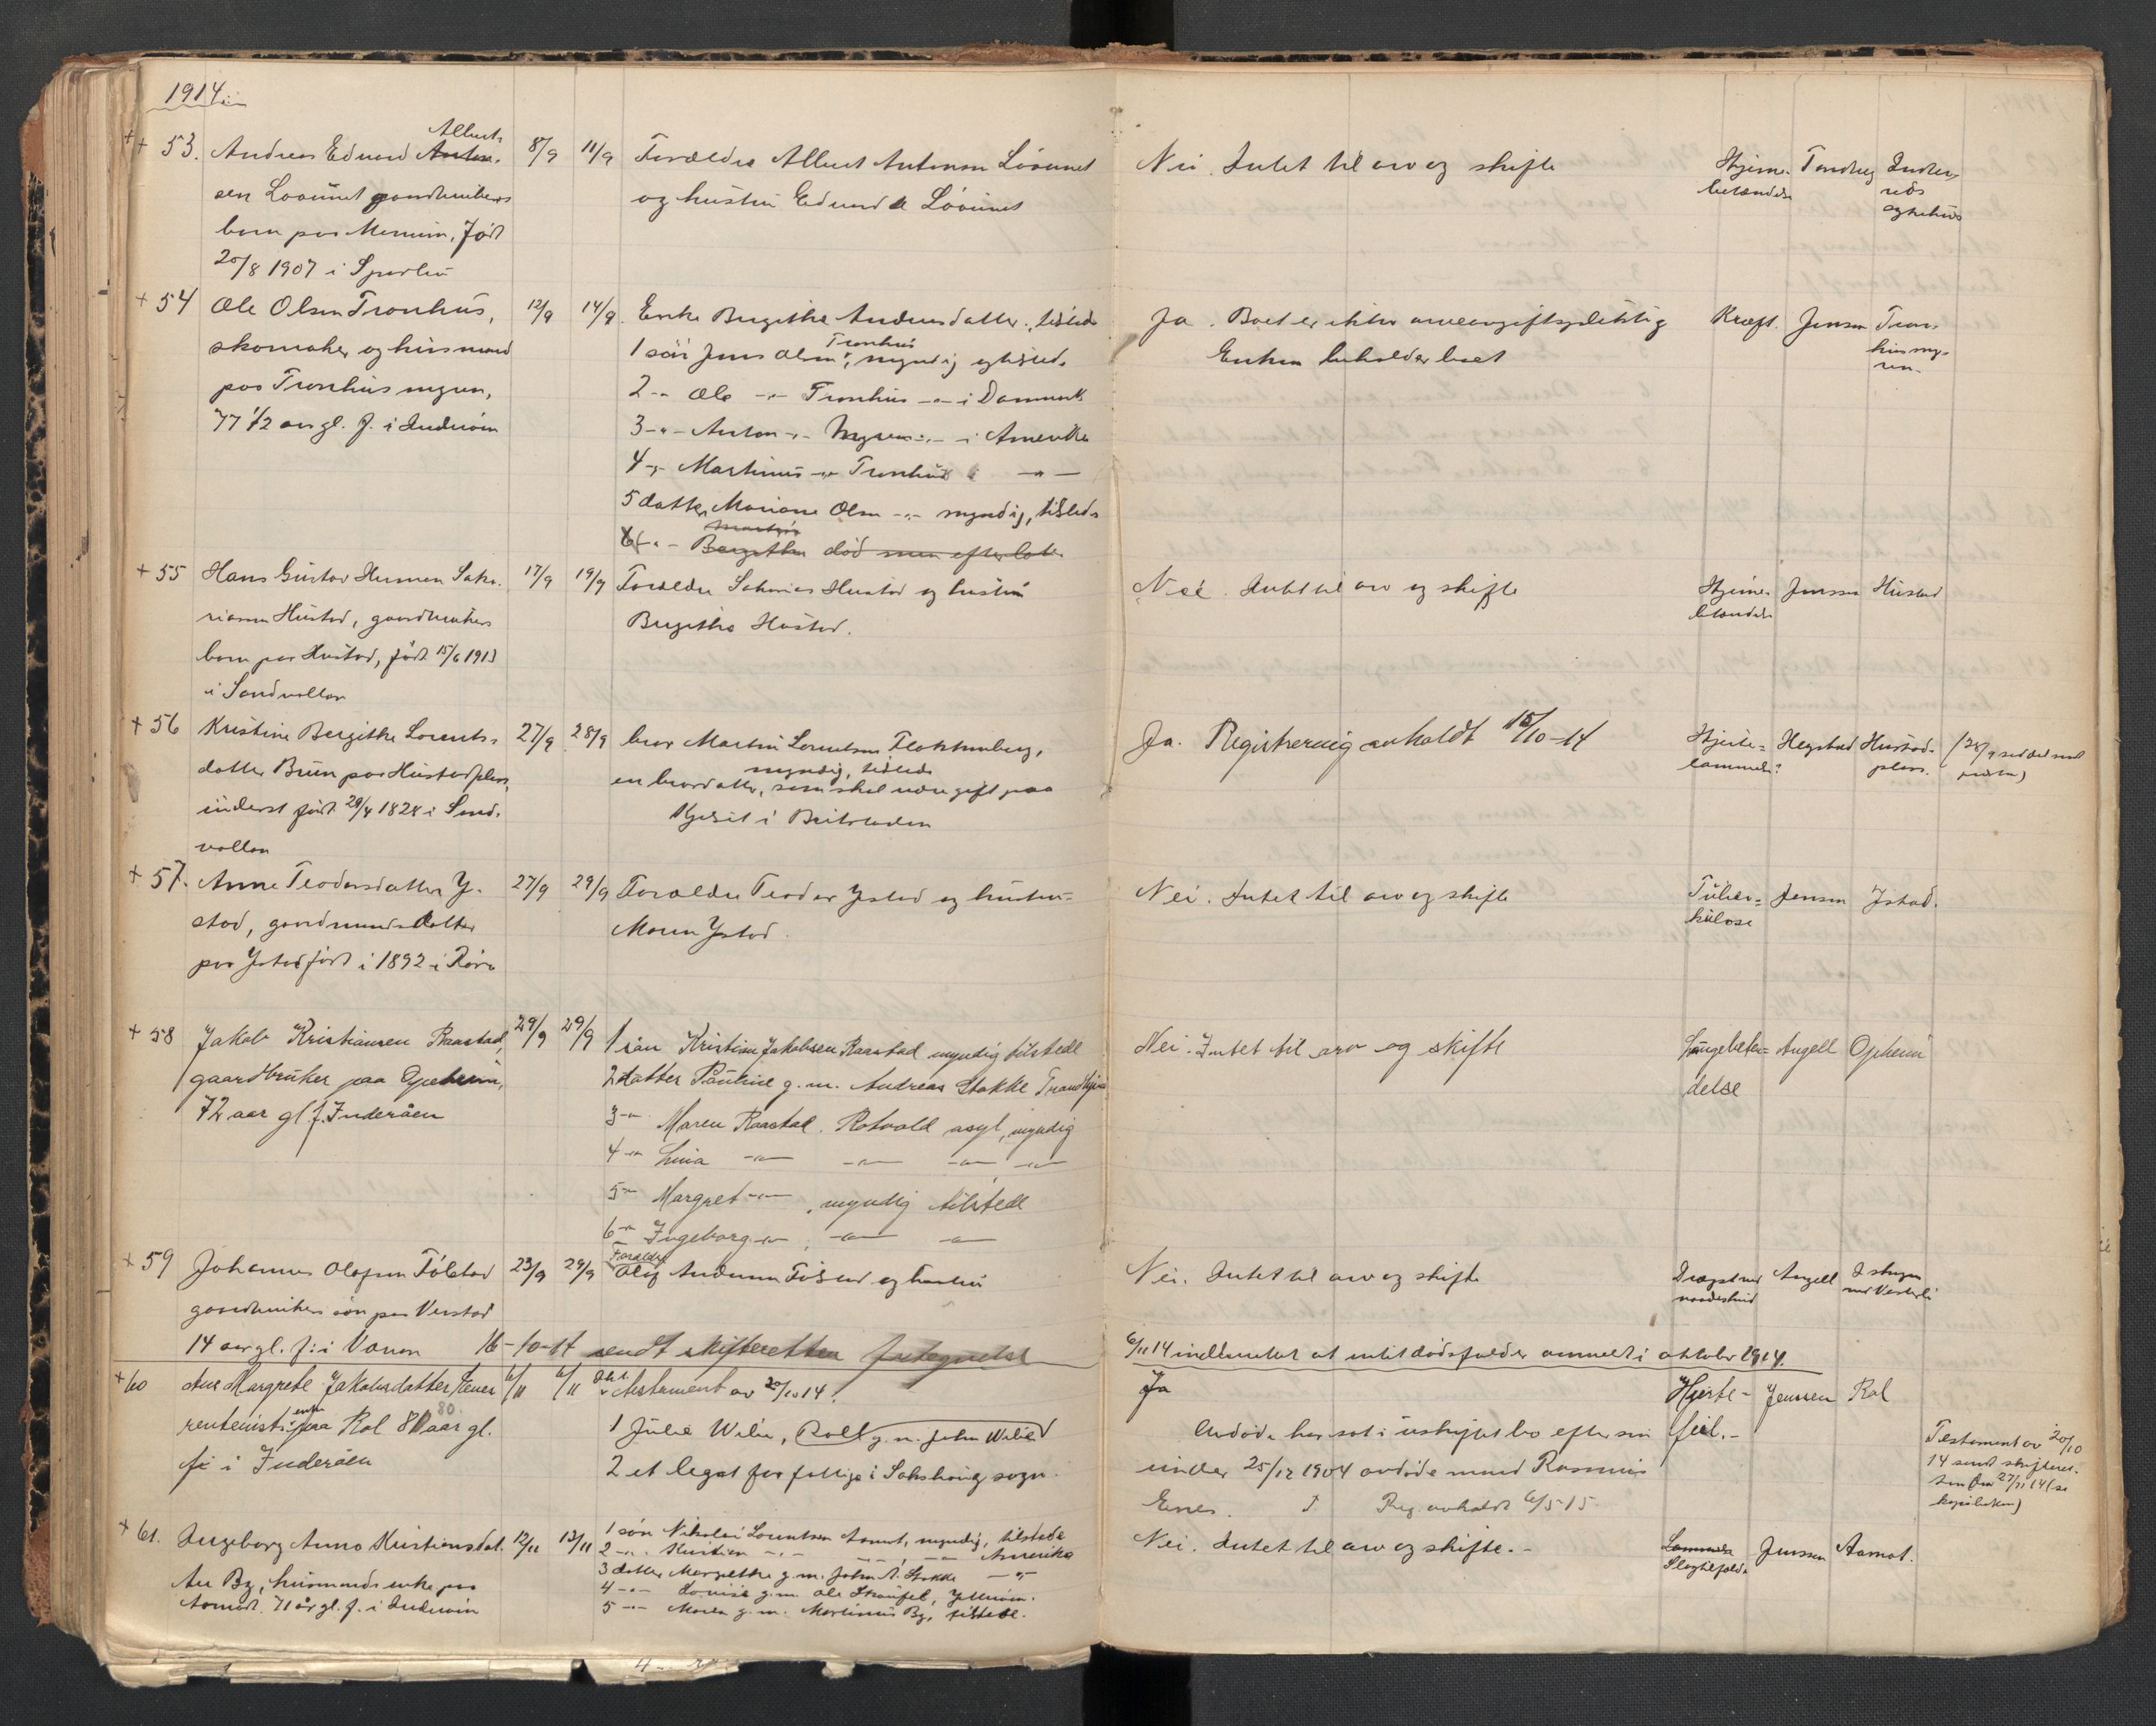 1914
++ 53. Andreas Edvard Anton- Alberts
sen Løvünet gaardbrukers
barn paa Mærium, Født
20/8 1907 i Sparbu
8/9 11/9
Forældre Albert Antonsen Løvünet
og hustru Edvarda Løvünet
Nei. Intet til arv og skifte
Hjerne-
betændelse
Tandberg
Inder-
øens
sykehus
+ 54 Ole Olsen Tronhüs,
skomaker og hüsmand
paa Tronhüsmyren,
77 1/2 aar gl. f. i Inderøien
12/9 14/9.
Enke Birgithe Andersdatter, tilstede
1 søn Jens Olsen Tronhüs, myndig og tilstede
2 -"- Ole -"- Tronhüs -"- i Danmark
3 -"- Anton -"- Myren -"- i Amerika
4 -"- Martinus -"- Tronhüs -"-
5 datter Mariane Olsen -"- myndig, tilstede
6 -"- Bergitha død men efterlate
Ja. Boet er ikke arveavgiftspliktig
Enken beholder boet
Kræft.
Jenssen
Tron-
hüsmy-
ren.
+ 55 Hans Güstav Herman Saka-
riassen Hüstad, gaardbrukers
barn paa Hüstad, født 15/6 1913
i Sandvollan
17/9 19/9
Forældre Sakarias Hüstad og hustrü
Bergitha Hüstad.
Nei. Intet til arv og skifte
Hjerne-
betændelse
Jenssen
Hüstad
+ 56 Kristine Bergitha Lorents-
datter Brün paa Hüstadplass,
inderst født 29/4 1828 i Sand-
vollan
27/9 28/9
bror Martin Lorentsen Flekkenberg,
myndig, tilstede
en brordatter, som skal være gift paa
i Beitstaden
Ja. Registrering avholdt 15/10-14
Hjerte-
lammelse?
Hegstad
Hüstad-
plass.
+ 57. Anne Teodorsdatter Y-
stad, gaardmandsdatter
paa Ystad født i 1892 i Røra
27/9 29/9
Forældre Teodor Ystad og hustru
Maren Ystad.
Nei. Intet til arv og skifte
Tüber-
külose
Jenssen
Ystad.
+ 58 Jakob Kristiansen Raastad,
gaardbrüker paa Opheim,
72 aar gl. f. Inderøen
29/9 29/9
1 søn Kristian Jakobsen Raastad myndig tilstede
2 datter Paüline g. m. Andreas Stokke Trondhjem
3 -"- Maren Raastad. Rotvold asyl, myndig
4 -"- Lina -"- -"- -"- -"-
5 -"- Margret -"-, myndig tilstede
6 -"- Ingeborg -"-, -"- -"-
Nei. Intet til arv og skifte
Lüngebetæn-
delse
Angell
Opheim
+ 59 Johannes Olafsen Følstad
gaardbrukers søn paa Verstad
14 aar gl. f. i Vanvn
23/9 29/9
Forældre
Olaf Andersen Følstad og hustru
Nei. Intet til arv og skifte
Dræpt ved
vaadeskud
Angell
I skogen
ved Vesterli
16-10-14 sendt skifteretten fortegnelse
6/11 14 indberettet at intet dødsfald er anmeldt i oktober 1914.
+60 Ane Margrete Jakobsdatter Eenes
rentenist enke paa Rol 81 80 aar gl.
fø i Inderøen
6/11 6/11
Testament av 20/10 14!
1 Jülie Wibe, Roll g. m. John Wibe
2 et legat for fattige i Sakshaug sogn.
Ja
Avdøde har sat i uskiftet bo efter sin
ünder 25/12 1904 avdøde mand Rasmus
Eenes. Reg. avholdt 6/5-15
Hjerte-
feil.-
Jenssen
Rol
Testament av 20/10
14 sendt skifteret-
ten den 27/11 14 (se
kopiboken)
+ 61. Ingeborg Anna Kristiansdat-
ter By, hüsmands enke paa
Aamot. 71 år gl. f. i Inderøien
12/11 13/11
1 søn Nikolai Lorentsen Aamot, myndig, tilstede
2 -"- Kristian -"- -"- -"- Amerika
3 datter Margrethe g. m. John A. Stokke -"-
4 -"- Lovise g. m. Ole Straüfel, Ytterøen.
5 -"- Maren g. m. Martinus By, tilstede.
Nei. Intet til arv og skifte.-
Lammelse
Slagtilfælde
Jenssen
Aamot.